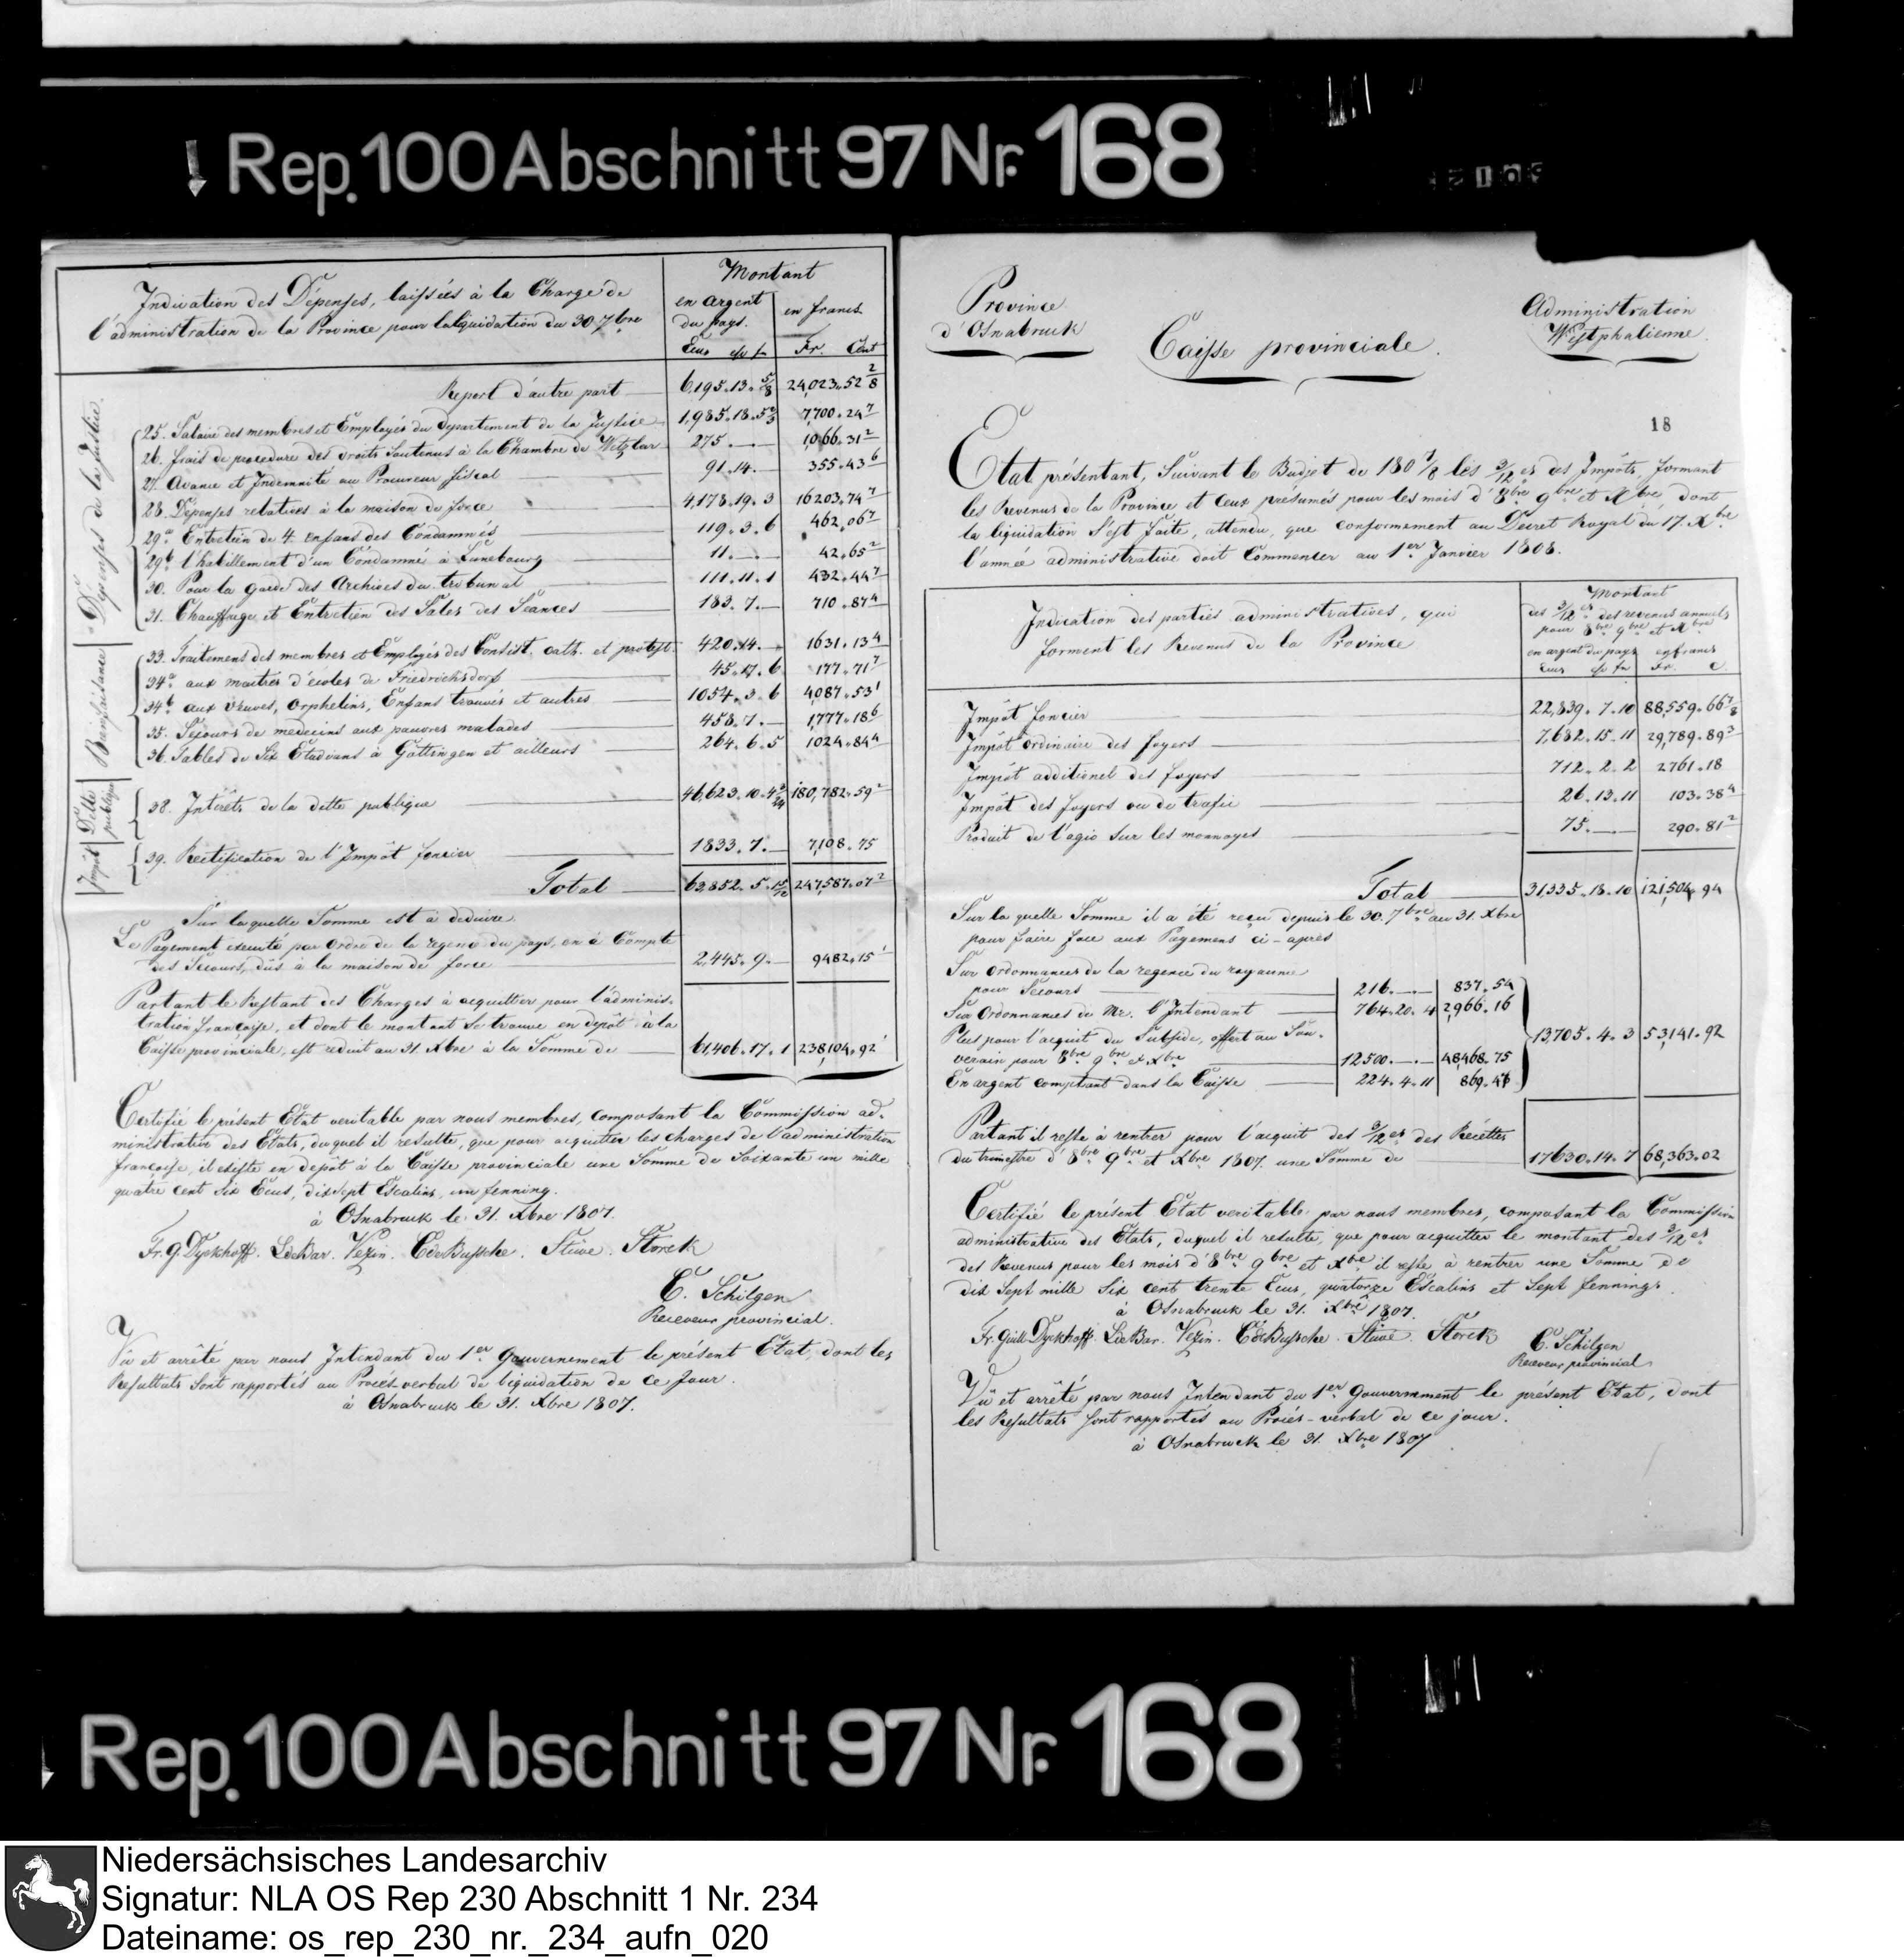 Rep. 100 Abschnitt 97 Nr. 168
Indication des Dépenses, laissées à la Charge de
l'administration de la Province pour la liquidation du 30. 7bre
Montant
en argent du pays. en francs
Ecus esc fn Fr. Cent
Report d'autre part 6,195.13.5/8 24,023.52 2/8
Dépenses de la Justice.
25. Salaire des membres et Employés du Departement de la Justice 1,985.18.5 2/3 7,700.24 7
26. frais de procedure des droits Soutenus à la Chambre de Wetzlar 275.—.— 1,066.31 2
27. Avance et Indemnité au Procureur fiscal 91.14.— 355.43 6
28. Dépenses relatives à la maison de force 4,178.19.3 16203.74 7
29a Entretien de 4 enfans des Condamnés 119.3.6 462.06 7
29b l'habillement d'un Condamné à Lunebourg 11.—.— 42.65 2
30. Pour la garde des Archives du tribunal 111.11.1 432.44 7
31. Chauffage et Entretien des Sales des Séances 183.7.— 710.87 4
Bienfaisance
33. Traitement des membres et Employés des Consist. cath. et protest. 420.14.— 1631.13 4
34a aux maitres d'écoles de Friedrichsdorf 45.17.6 177.71 7
34b aux Veuves, Orphelins, Enfans trouvés et autres 1054.3.6 4,087.53 1
35. Secours de medecins aux pauvres malades 458.7.— 1,777.18 6
36. Tables de Six Etudians à Göttingen et ailleurs 264.6.5 1024.84 4
Dette publique
38. Intérêts de la dette publique 46,623.10.4 180,782.59 2
Impôt
39. Rectification de l'Impôt foncier 1833.7.— 7,108.75
Total 63,852.5. 247,587.07 2
Sur laquelle Somme est à deduire
Le Payement executé par Ordre de la regence du pays, en à Compte
des Secours, dûs à la maison de force 2,445.9.— 9482.15 1
Partant le Restant des Charges à acquitter pour l'adminis-
tration francoise, et dont le montant se trouve en depôt à la
Caisse provinciale, est reduit au 31. Xbre à la Somme de 61,406.17.1 238,104.92 1
Certifié le présent Etat veritable par nous membres, composant la Commission ad-
ministrative des Etats, duquel il resulte, que pour acquitter les charges de l'administration
francoise, il existe en depôt à la Caisse provinciale une Somme de Soixante un mille
quatre cent six Ecus, dixsept Escalins, un fenning.
à Osnabruck le 31. Xbre 1807.
Fr. G. Dyckhoff. L de Bar. Vezin. C de Bussche. Stüve. Storck
C. Schilgen
Receveur provincial.
Vû et arrêté par nous Intendant du 1er Gouvernement le présent Etat, dont les
Resultats sont rapportés au Procès-verbal de liquidation de ce Jour.
à Osnabruck le 31. Xbre 1807.
Province
d'Osnabruck
Administration
Westphalienne
Caisse provinciale.
18
Etat présentant, Suivant le Budjet de 180 7/8 les 3/12es des Impôts, formant
les Revenus de la Province et ceux présumés pour les mois d'8bre 9bre et Xbre, dont
la liquidation s'est faite, attendu, que conformement au Décret Royal du 17. Xbre
l'année administrative doit Commencer au 1er Janvier 1808.
Indication des parties administratives, qui
forment les Revenus de la Province
Montant
des 3/12es des revenus annuels
pour 8bre 9bre et Xbre
en argent du pays en francs
Ecus esc fn Fr. C.
Impôt foncier 22,839.7.10 88,559.66 7/8
Impôt ordinaire des foyers 7,682.15.11 29,789.89 3
Impôt additionel des foyers 712.2.2 2761.18
Impôt des foyers ou de trafic 26.13.11 103.38 4
Produit de l'agio sur les monnoyes 75.—.— 290.81 2
Total 31,335.18.10 121,504.94
Sur la quelle Somme il a été reçu depuis le 30. 7bre au 31. Xbre
pour faire face aux Payemens ci-après
Sur Ordonnances de la regence du royaume
pour Secours 216.—.— 837.54
Sur Ordonnances de Mr. l'Intendant 764.20.4 2,966.16
Plus pour l'acquit du Subside, offert au Sou-
verain pour 8bre 9bre et Xbre 12500.—.— 48,468.75
En argent comptant dans la Caisse 224.4.11 869.46
13,705.4.3 53,141.92
Partant il reste à rentrer pour l'acquit des 3/12es des Récettes
du trimestre d'8bre 9bre et Xbre 1807. une Somme de 17630.14.7 68,363.02
Certifié le présent Etat veritable par nous membres, composant la Commission
administrative des Etats, duquel il resulte, que pour acquitter le montant des 3/12es
des Revenus pour les mois d'8bre 9bre et Xbre il reste à rentrer une Somme de
dix Sept mille Six cent trente Ecus, quatorze Escalins et Sept fennings.
à Osnabruck le 31. Xbre 1807.
Fr. Guill. Dyckhoff. L de Bar. Vezin. C de Bussche. Stüve. Storck C. Schilgen
Receveur provincial
Vû et arrêté par nous Intendant du 1er Gouvernement le présent Etat, dont
les Resultats sont rapportés au Procès-verbal de ce jour.
à Osnabruck le 31. Xbre 1807
Rep. 100 Abschnitt 97 Nr. 168
Niedersächsisches Landesarchiv
Signatur: NLA OS Rep 230 Abschnitt 1 Nr. 234
Dateiname: os_rep_230_nr._234_aufn_020